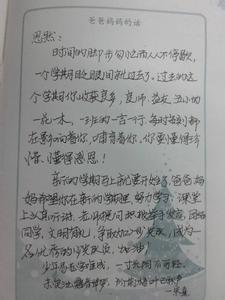 爸爸妈妈的话
思然：
时间的脚步匆匆而从不停歇，
一个学期眨眼间就过去了。过去的这
个学期你收获良多，良师、益友、五小的
一花一木，一班的一言一行，每时每刻都
在影响着你，哺育着你，你要懂得珍
惜、懂得感恩！
新的学期马上就要开始了，爸爸妈
妈希望你在新的学期里，努力学习，课堂
上认真听讲，老师提问积极举手发言，团结
同学，文明有礼，争取加入少先队，成为一
名优秀的少先队员，加油！
少年易老学难成，一寸光阴不可轻。
未觉池塘春草梦，阶前梧叶已秋声